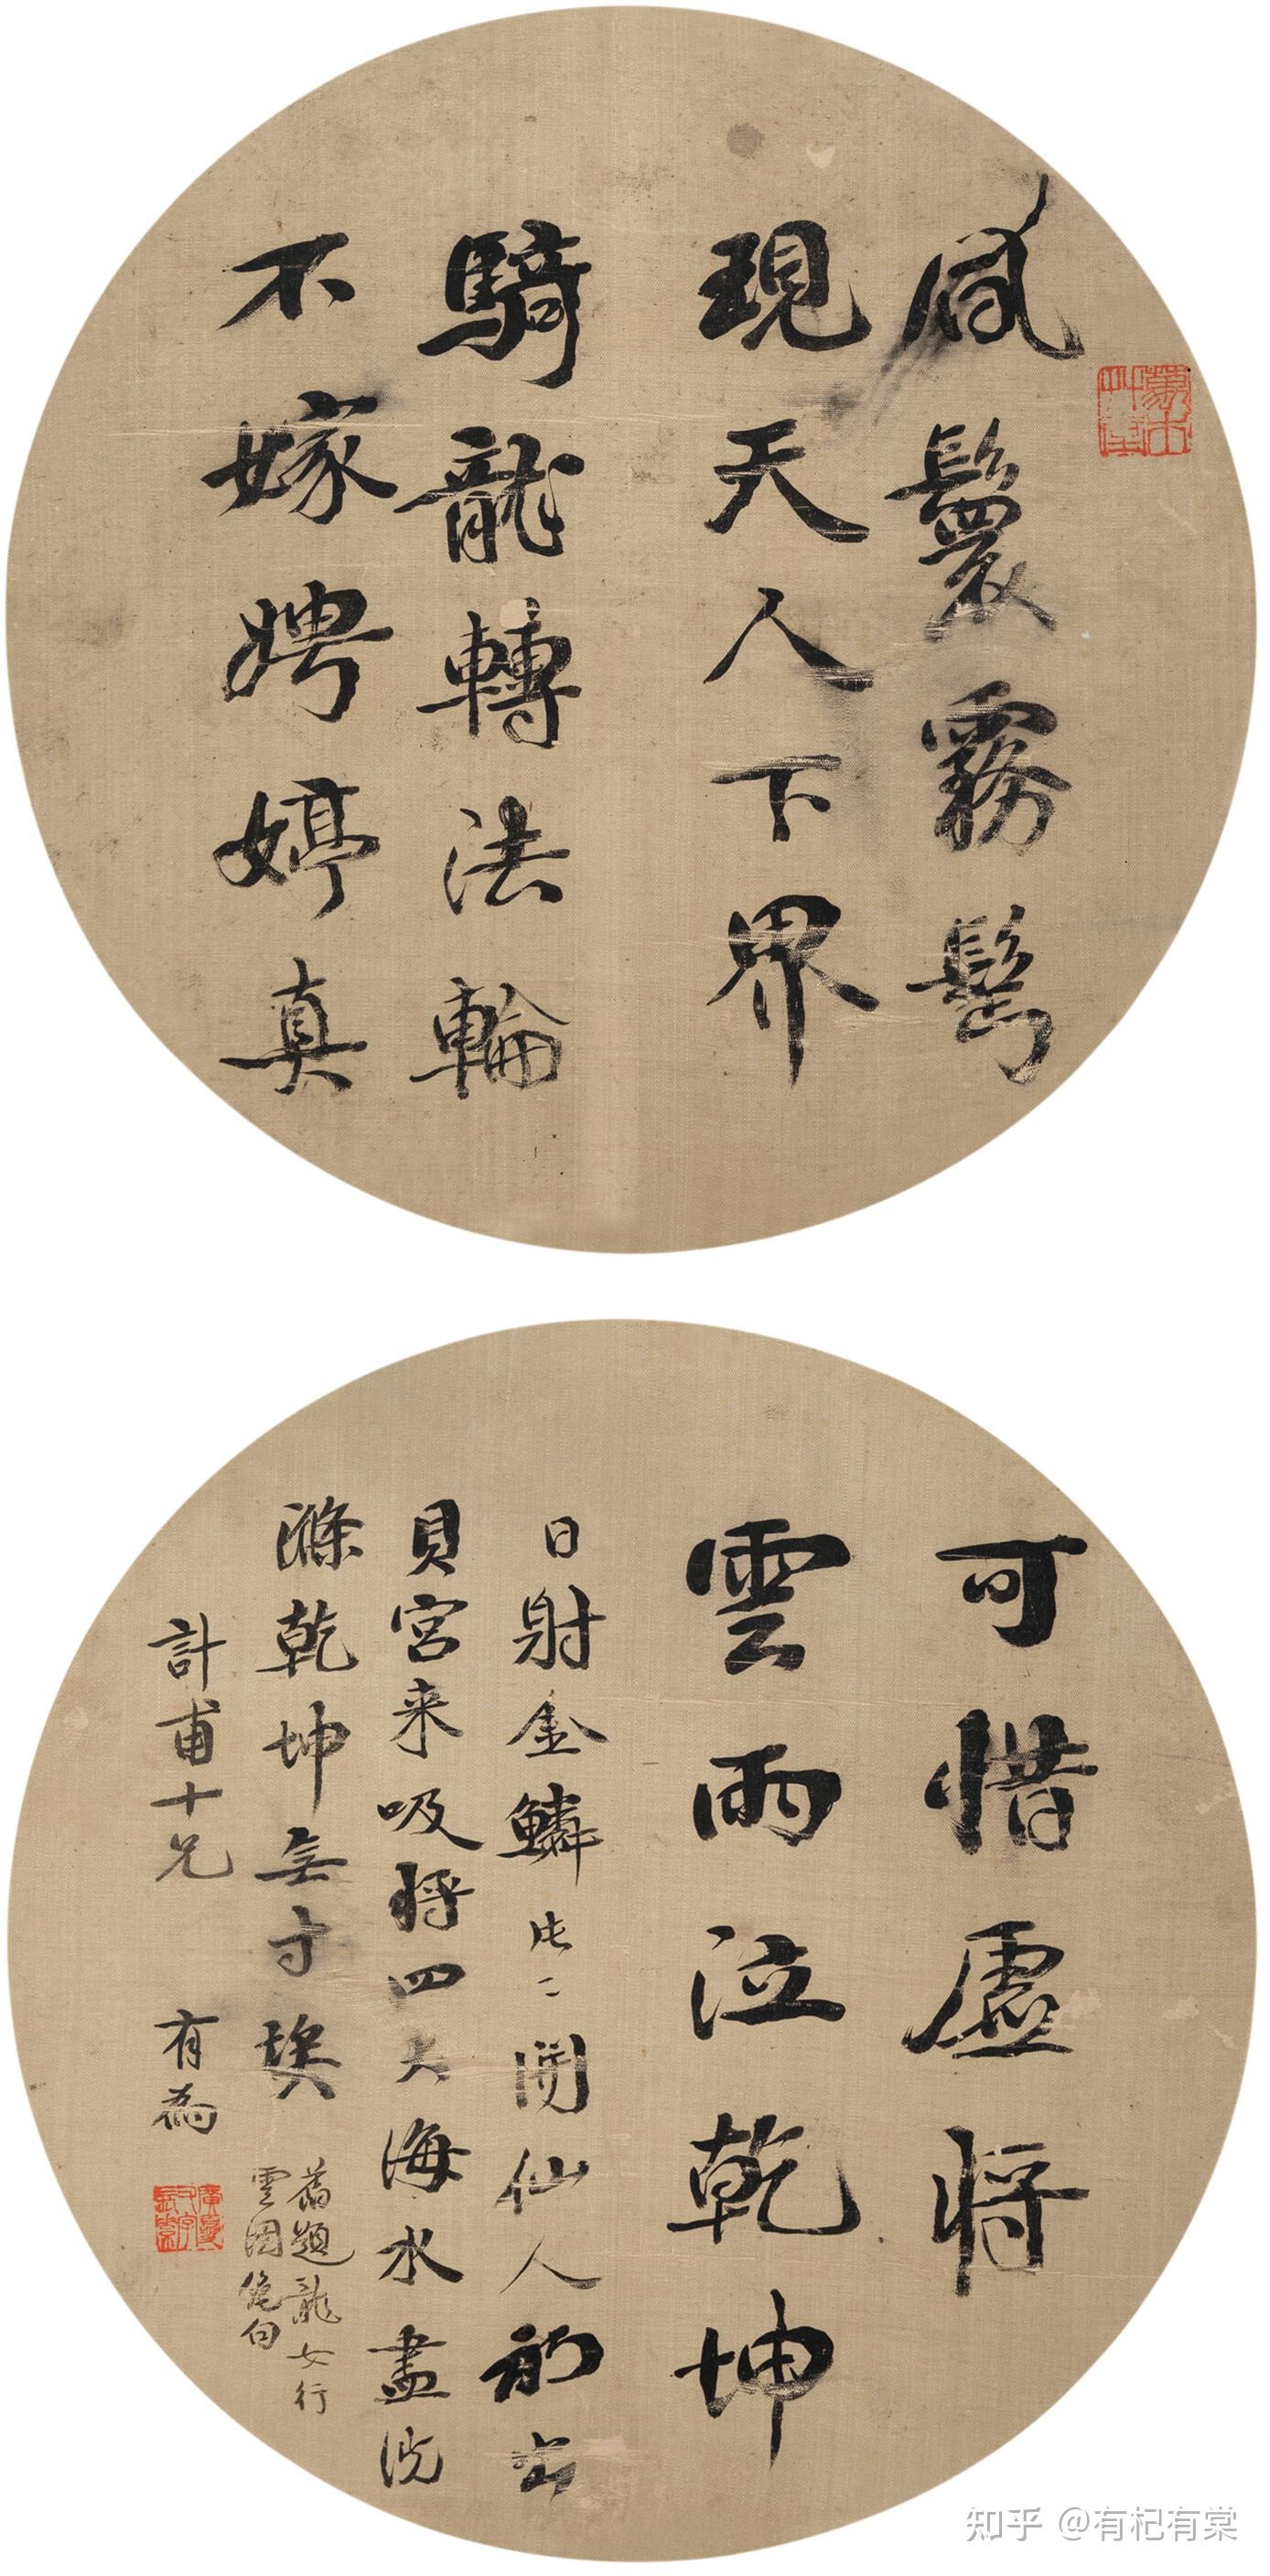 萬木艸堂
風鬟霧鬢
現天人下界
騎龍轉法輪
不嫁娉婷真
可惜虛將
雲雨泣乾坤
日射金鱗片二開仙人初出
貝宮来吸將四大海水盡洗
滌乾坤無寸埃
舊題龍女行
雲圖絕句
計甫十兄 有為
知乎 @有杞有棠